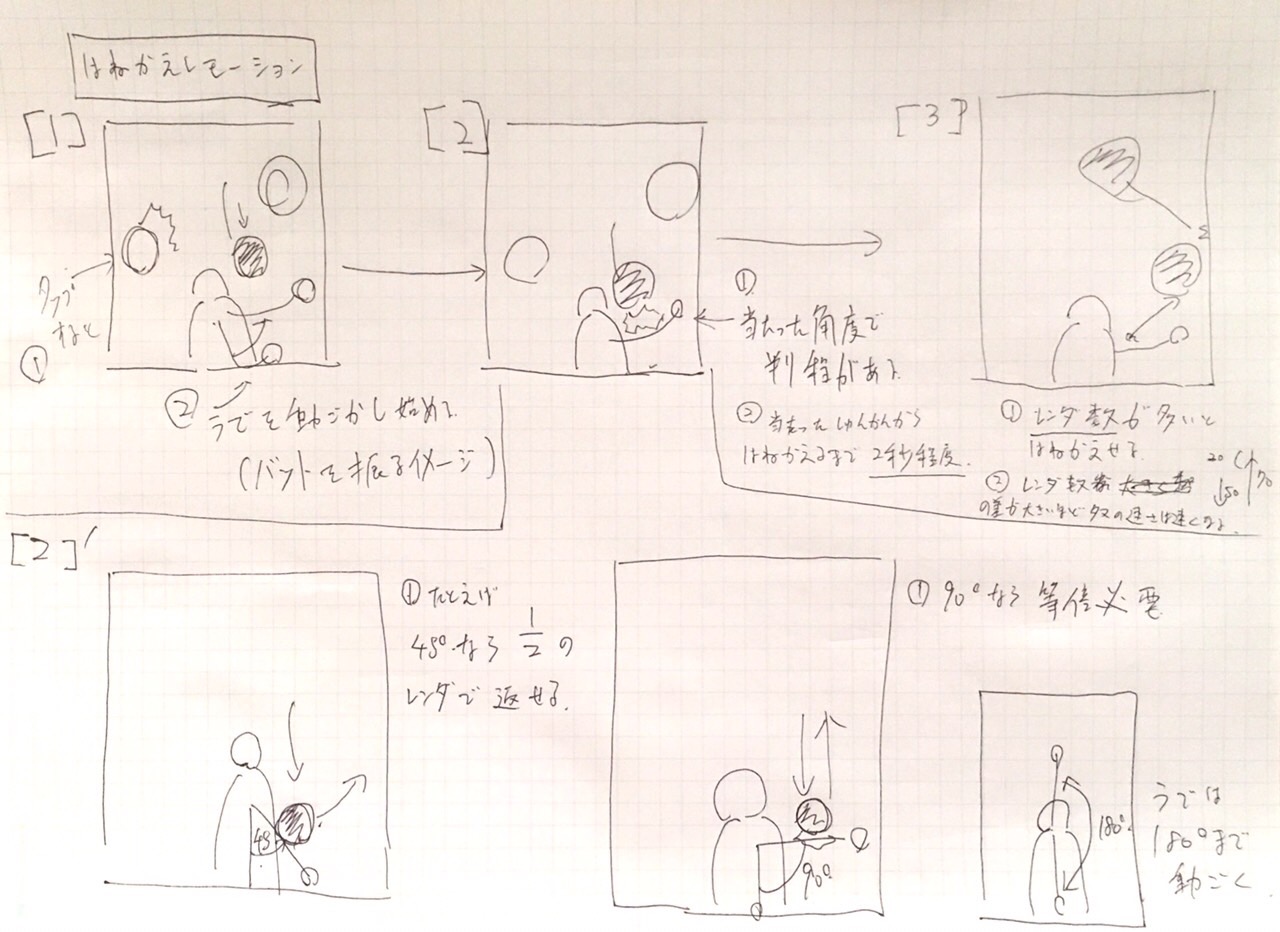 はねかえしモーション
[1]
タップ
すると
①
② うでを動ごかし始める
(バットを振るイメージ)
[2]
①
当たった角度で
判定がある
② 当たったしゅんかんから
はねかえるまで 2秒程度.
[3]
① レンダ数が多いと
はねかえせる
② レンダ数
の差が大きいほどタマの速さは速くなる.
20
50
70
[2]′
① たとえば
45°なら 1/2 の
レンダで返せる.
45
① 90°なら等倍必要
90°
180°
うでは
180°まで
動ごく